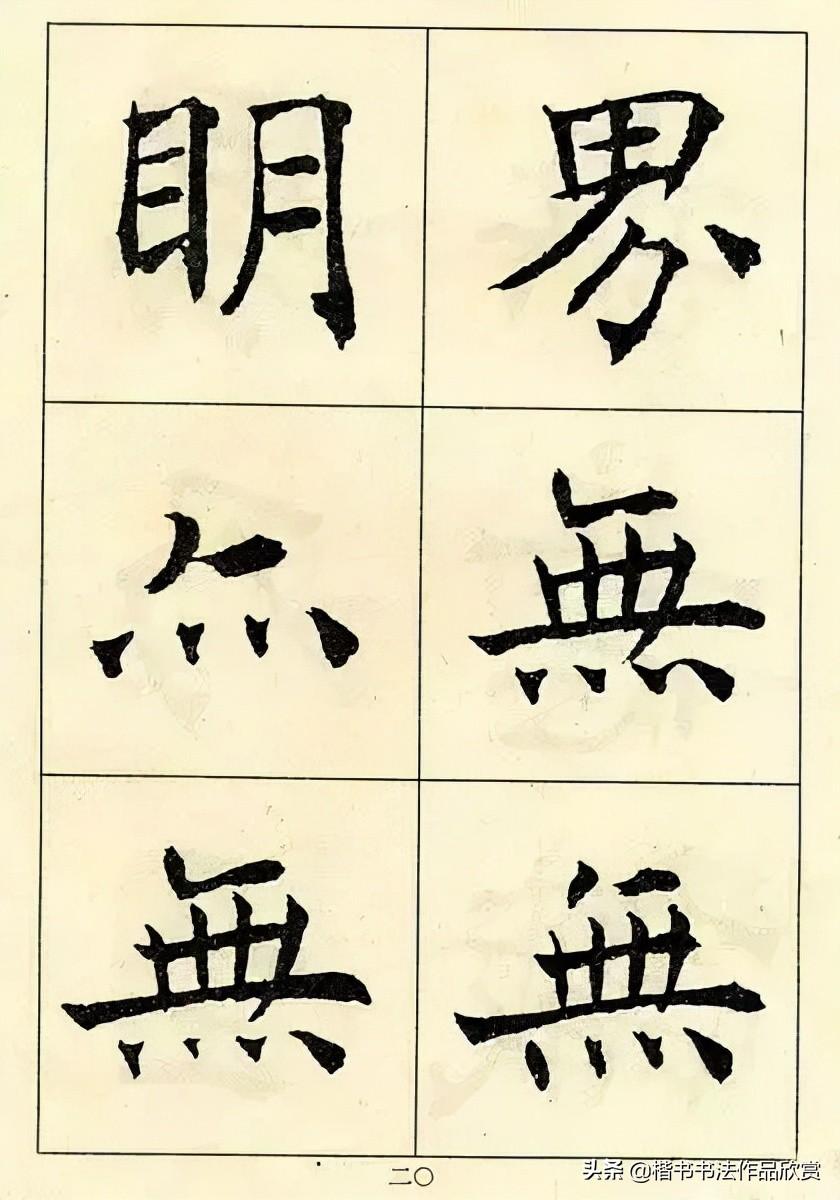 界無無
眀亦無
二〇
头条 @楷书书法作品欣赏